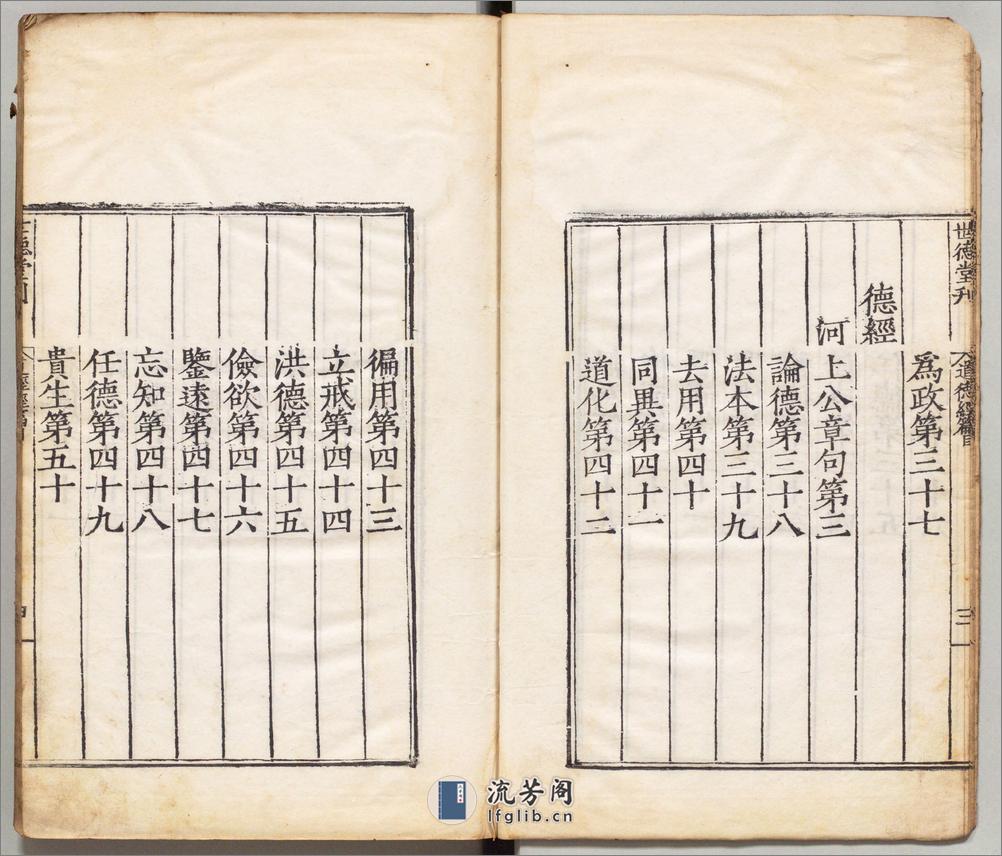 世德堂刊
道德經篇目
三
爲政第三十七
德經
河上公章句第三
論德第三十八
法本第三十九
去用第四十
同異第四十一
道化第四十二
徧用第四十三
立戒第四十四
洪德第四十五
儉欲第四十六
鑒遠第四十七
忘知第四十八
任德第四十九
貴生第五十
流芳阁
lfglib.cn